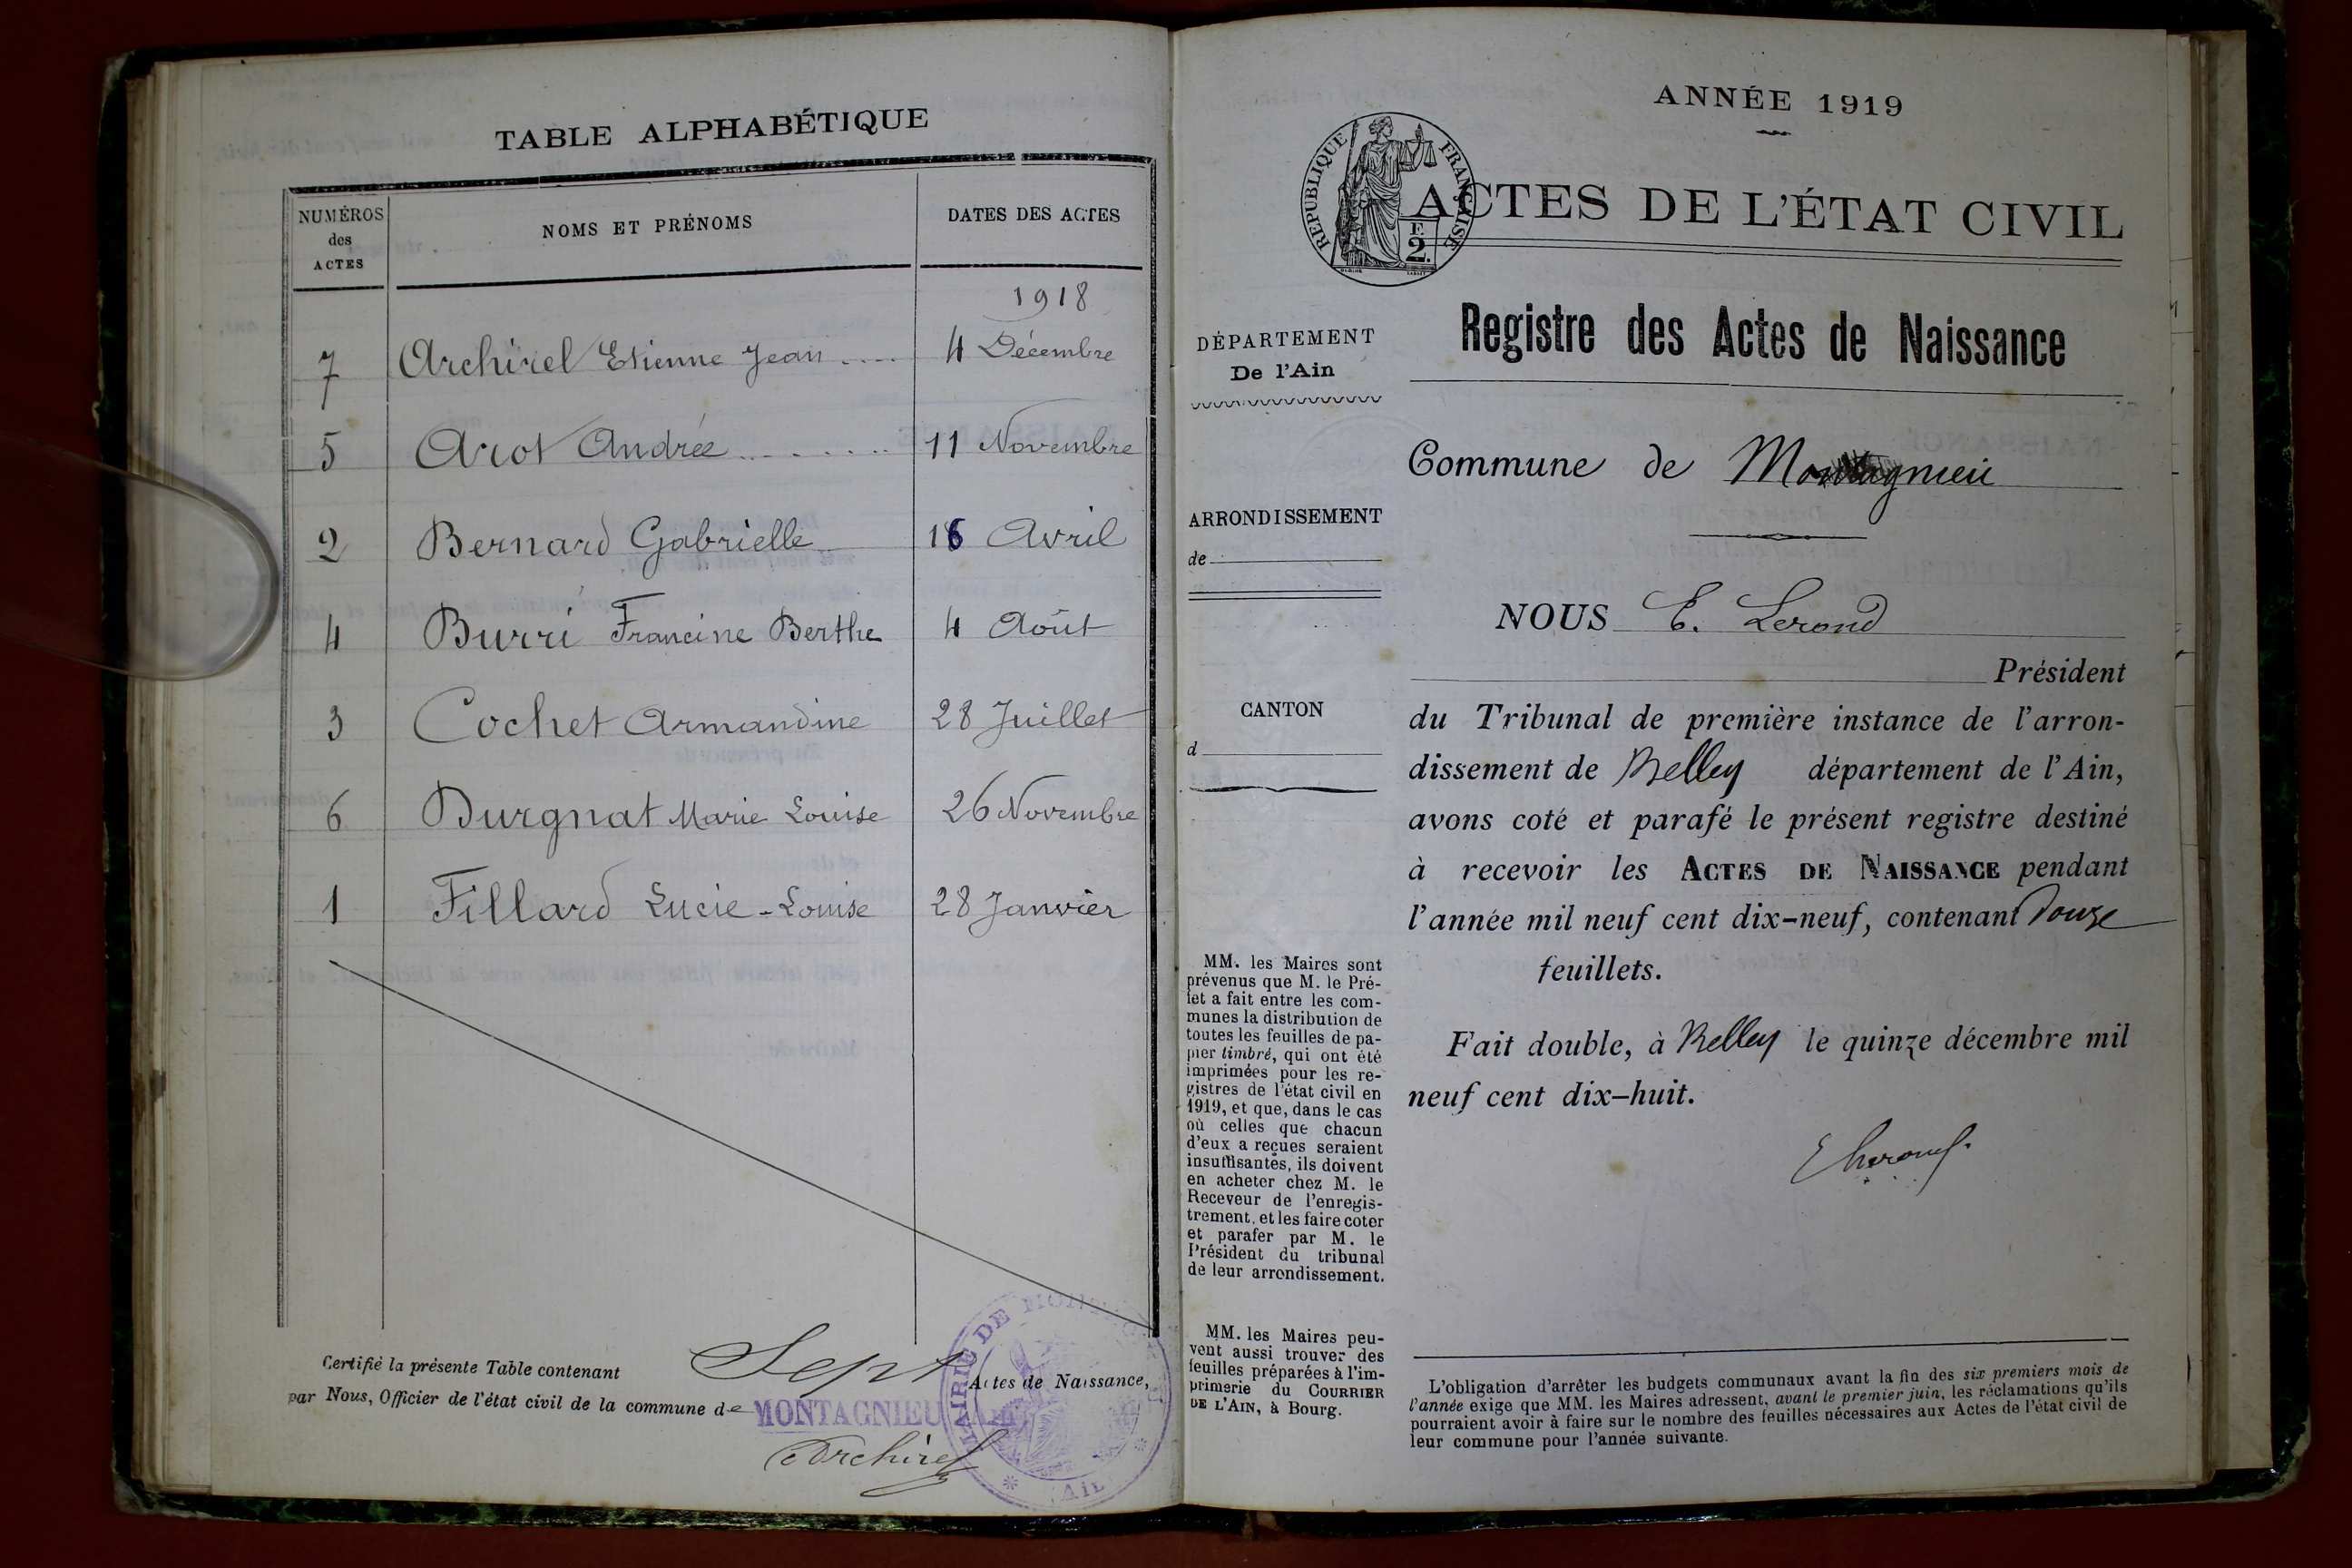 TABLE ALPHABÉTIQUE
NUMÉROS
des
ACTES
NOMS ET PRÉNOMS
DATES DES ACTES
1918
7 Archirel Etienne Jean 4 Décembre
5 Arot Andrée 11 Novembre
2 Bernard Gabrielle 16 Avril
4 Burri Francine Berthe 4 Août
3 Cochet Armandine 28 Juillet
6 Durgnat Marie Louise 26 Novembre
1 Fillard Lucie-Louise 28 Janvier
Certifié la présente Table contenant Sept Actes de Naissance,
par Nous, Officier de l'état civil de la commune de MONTAGNIEU
MAIRIE DE
AIN
Archirel
ANNÉE 1919
RÉPUBLIQUE FRANÇAISE
F.
2.
ACTES DE L'ÉTAT CIVIL
Registre des Actes de Naissance
DÉPARTEMENT
De l'Ain
ARRONDISSEMENT
de
CANTON
d
MM. les Maires sont
prévenus que M. le Pré-
fet a fait entre les com-
munes la distribution de
toutes les feuilles de pa-
pier timbré, qui ont été
imprimées pour les re-
gistres de l'état civil en
1919, et que, dans le cas
où celles que chacun
d'eux a reçues seraient
insuffisantes, ils doivent
en acheter chez M. le
Receveur de l'enregis-
trement, et les faire coter
et parafer par M. le
Président du tribunal
de leur arrondissement.
MM. les Maires peu-
vent aussi trouver des
feuilles préparées à l'im-
primerie du COURRIER
DE L'AIN, à Bourg.
Commune de Montagnieu
NOUS E. Lerond
Président
du Tribunal de première instance de l'arron-
dissement de Belley département de l'Ain,
avons coté et parafé le présent registre destiné
à recevoir les ACTES DE NAISSANCE pendant
l'année mil neuf cent dix-neuf, contenant douze
feuillets.
Fait double, à Belley le quinze décembre mil
neuf cent dix-huit.
L'obligation d'arrêter les budgets communaux avant la fin des six premiers mois de
l'année exige que MM. les Maires adressent, avant le premier juin, les réclamations qu'ils
pourraient avoir à faire sur le nombre des feuilles nécessaires aux Actes de l'état civil de
leur commune pour l'année suivante.